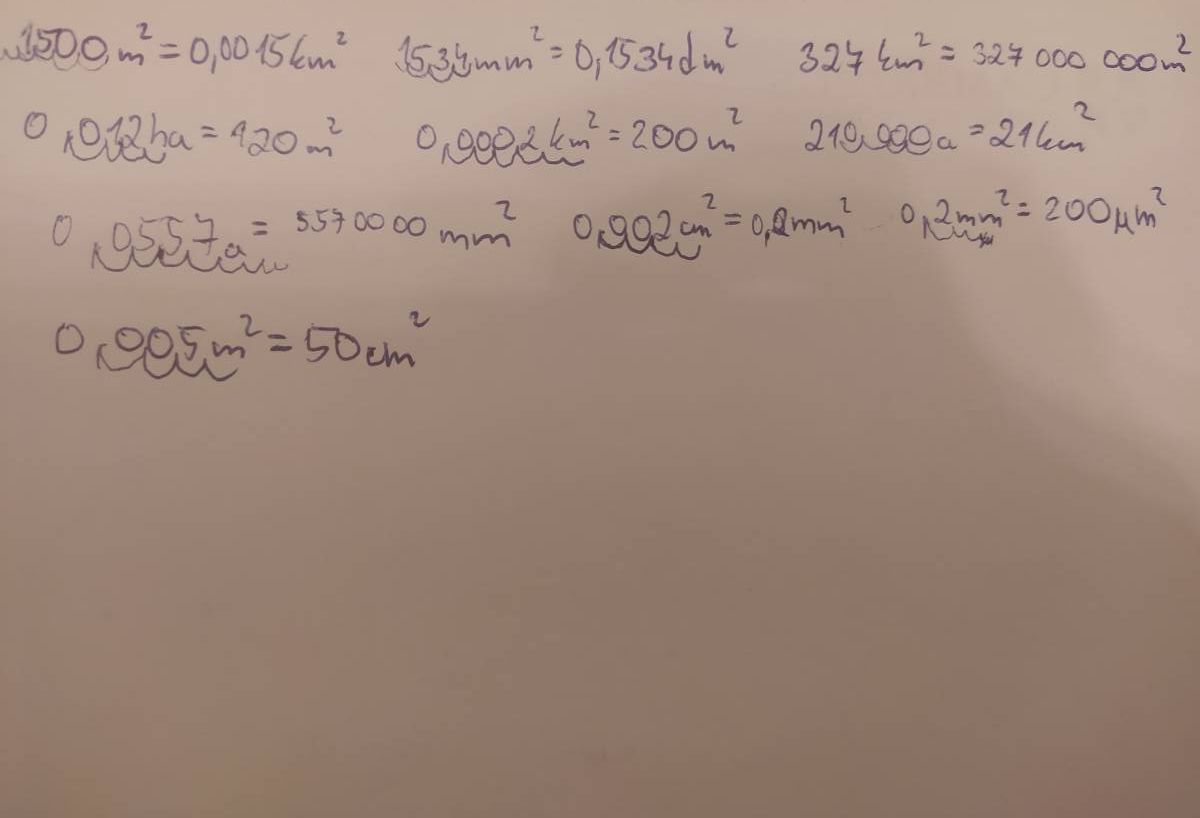 1500 m² = 0,0015 km² 1534 mm² = 0,1534 dm² 327 km² = 327 000 000 m²
0,012 ha = 120 m² 0,0002 km² = 200 m² 210000 a = 21 km²
0,0557 a = 5570000 mm² 0,002 cm² = 0,2 mm² 0,2 mm² = 200 μm²
0,005 m² = 50 cm²